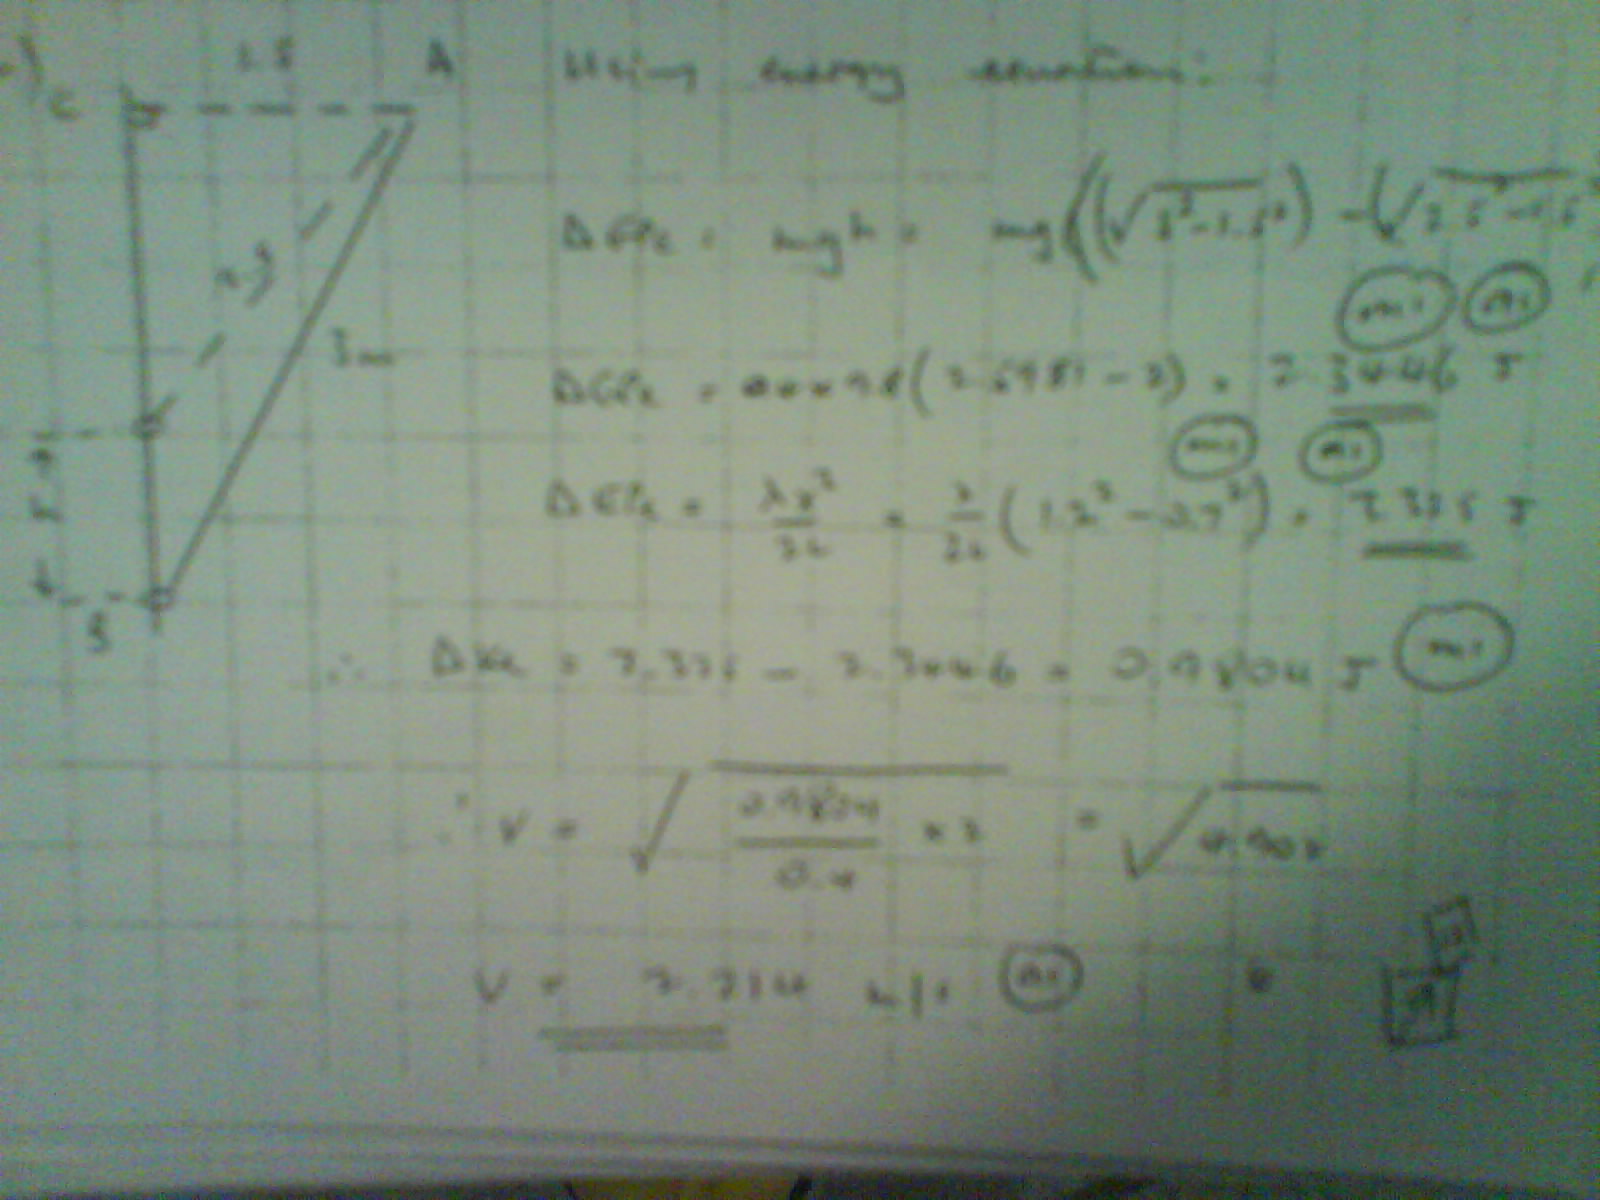 1.5 A
C
Using energy equation:
ΔGPE = mgh = mg((√3²-1.5²) - (√2.5²-1.5²
M1 A1
3m
ΔGPE = 0.4×9.8(2.5981-2) = 2.3446 J
M1 A1
ΔEPE = λx²/2L = λ/2L (1.2² - 0.7²) = 3.325 J
B
∴ ΔKE = 3.325 - 2.3446 = 0.9804 J M1
∴ V = √ 0.9804/0.4 × 2 = √4.902
V = 2.214 m/s A1